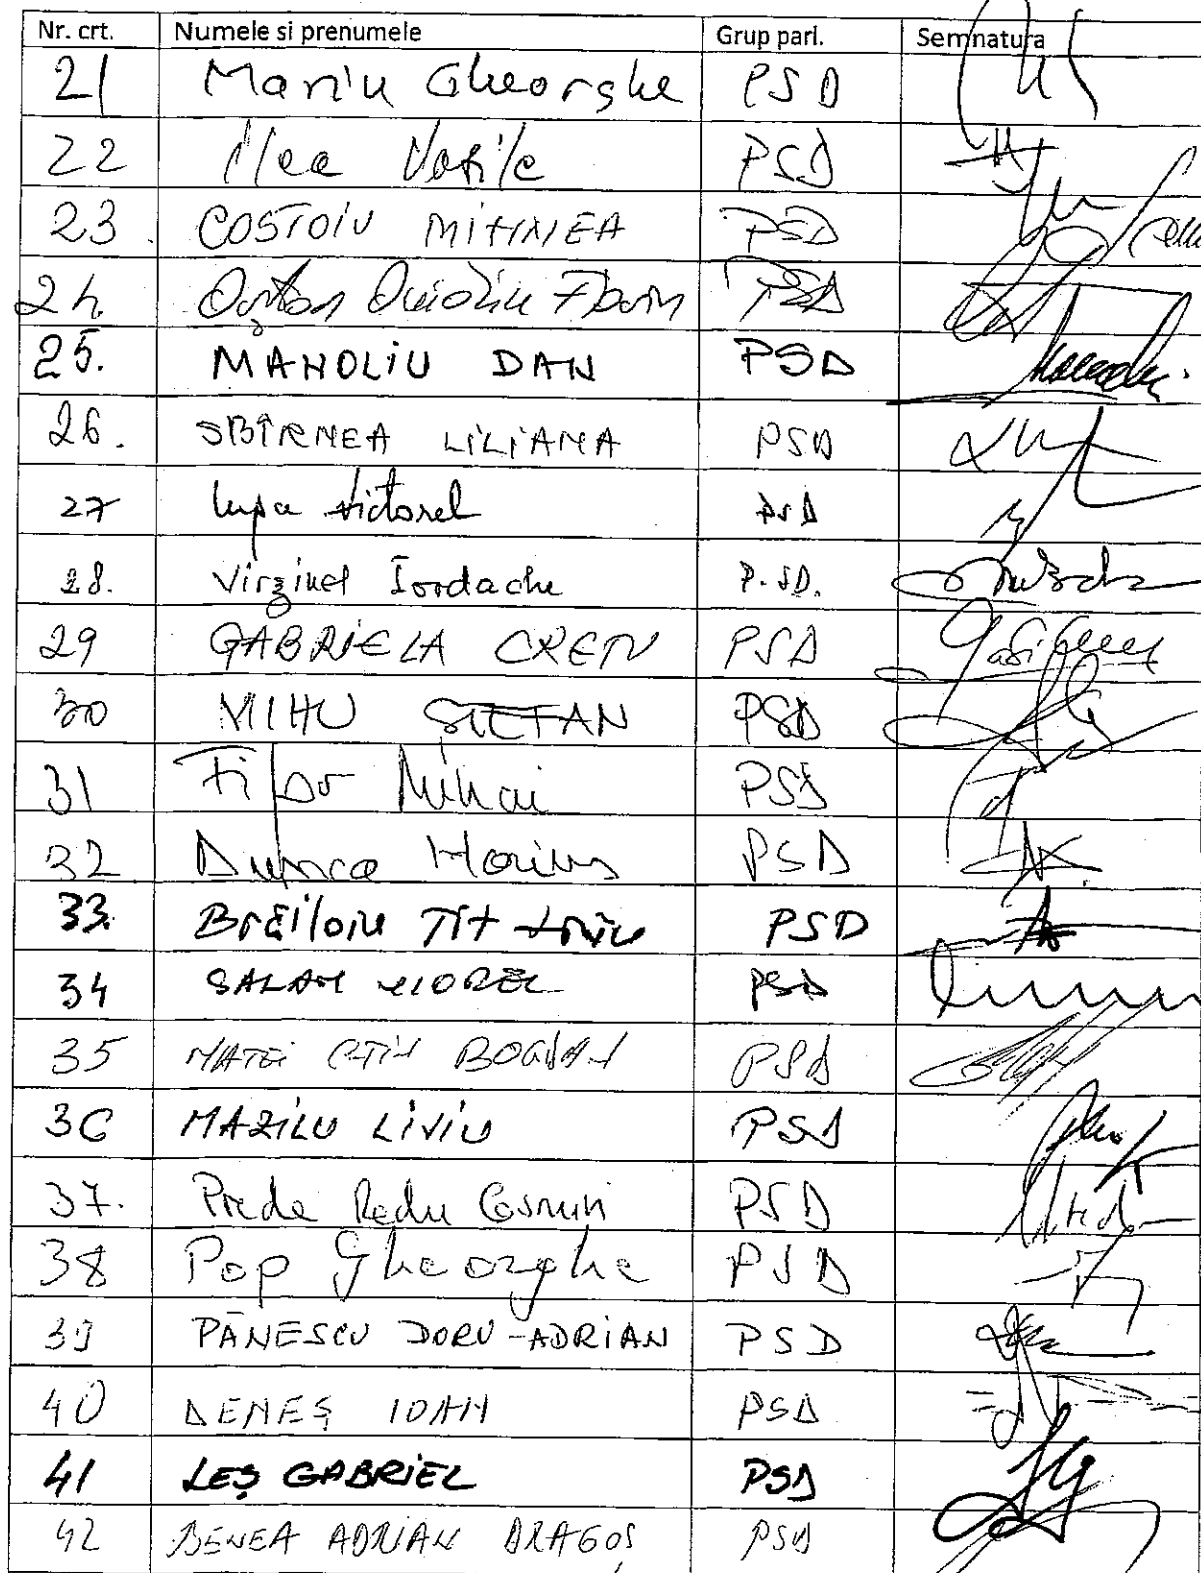 Nr. crt. Numele si prenumele Grup parl. Semnatura
21 Marin Gheorghe PSD
22 Ilea Vasile PSD
23. COSTOIU MIHNEA PSD
24. Ovidiu Florin PSD
25. MANOLIU DAN PSD
26. SBÎRNEA LILIANA PSD
27 Lupa Victorel PSD
28. Virginel Iordache P.SD.
29 GABRIELA CREȚU PSD
30 MIHU ȘTEFAN PSD
31 Fifor Mihai PSD
32 Dumca Marius PSD
33. Brăiloiu Tit Liviu PSD
34 SALAN VIOREL PSD
35 MATEI CTIN BOGDAN PSD
36 MAZILU LIVIU PSD
37. Preda Radu Cosmin PSD
38 Pop Gheorghe PSD
39 PĂNESCU DORU-ADRIAN PSD
40 DENEȘ IOAN PSD
41 LEȘ GABRIEL PSD
42 BENEA ADRIAN DRAGOȘ PSD